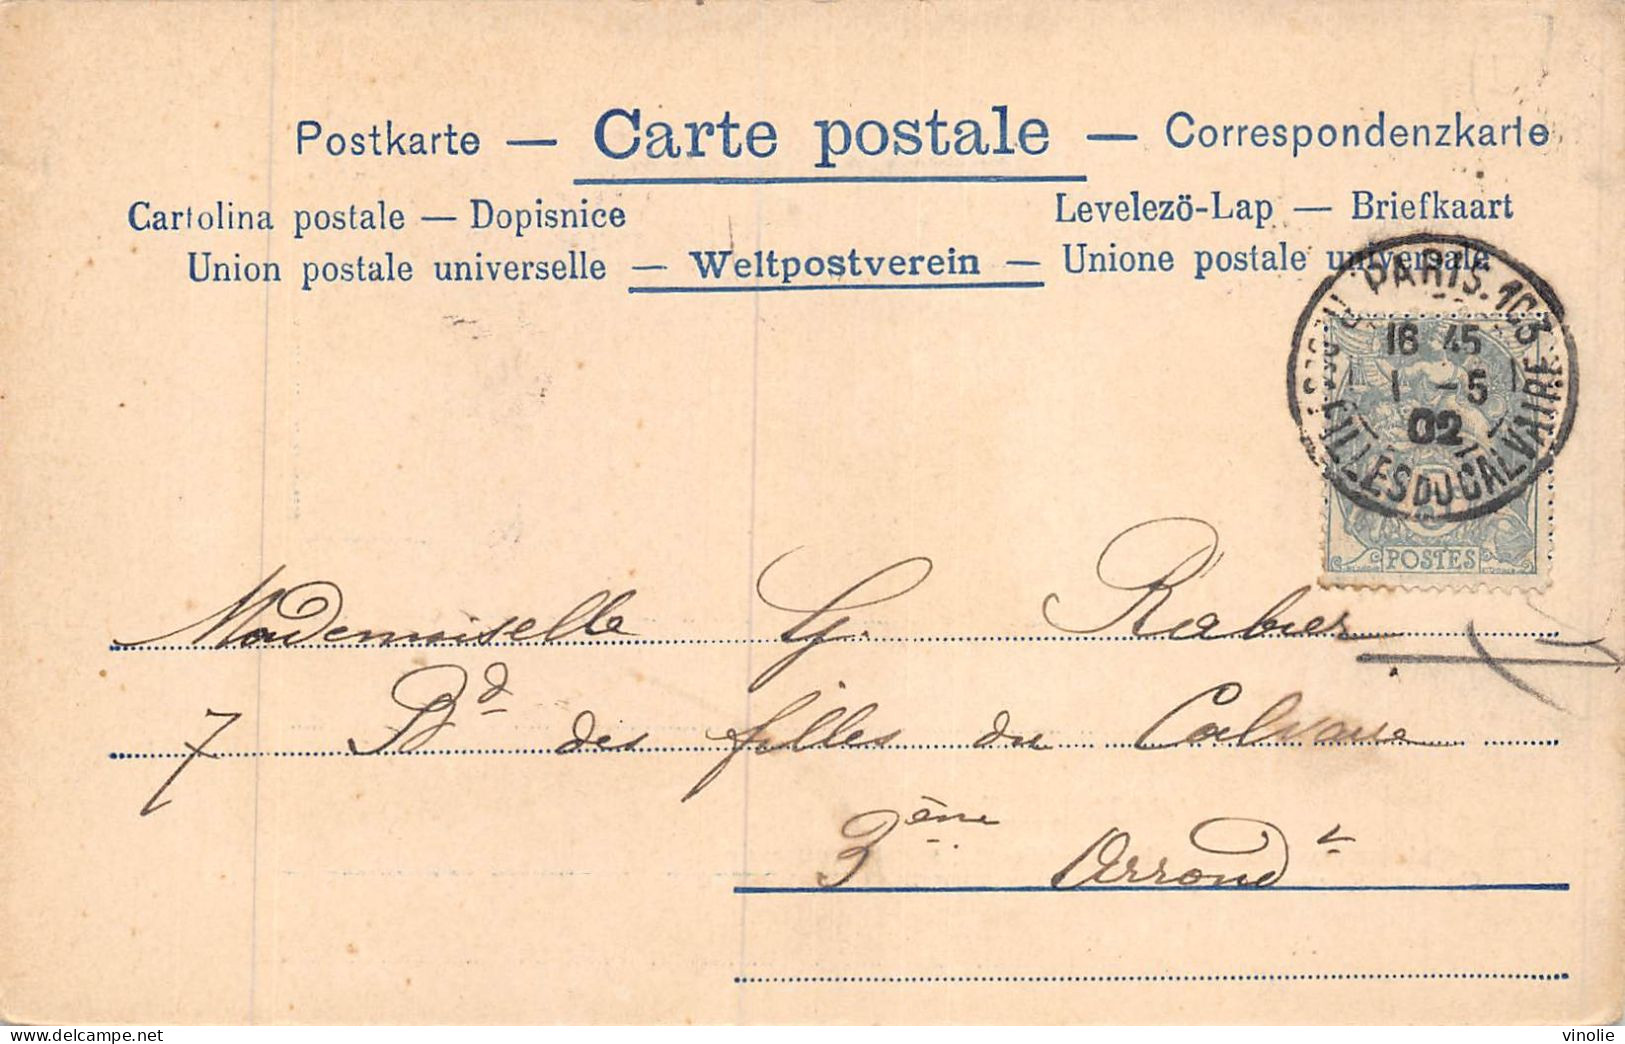 Postkarte — Carte postale — Correspondenzkarte
Cartolina postale — Dopisnice
Levelezö-Lap — Briefkaart
Union postale universelle — Weltpostverein — Unione postale universale
PARIS. 103
18 45
1 - 5
02
FILLES DU CALVAIRE
POSTES
Mademoiselle G. Rabier
7 Bd des filles du Calvaire
3ème Arrondt
delcampe.net
vinolie